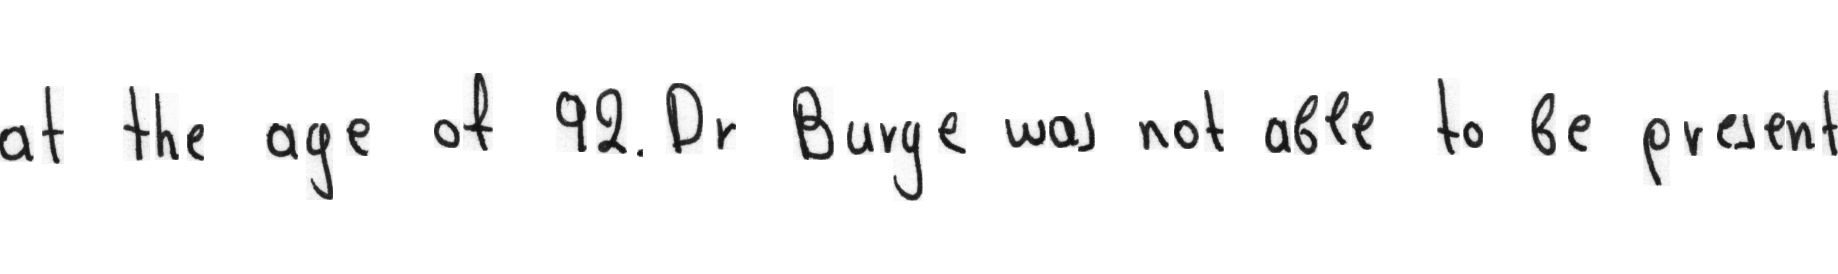 at the age of 92. Dr Burge was not able to be present